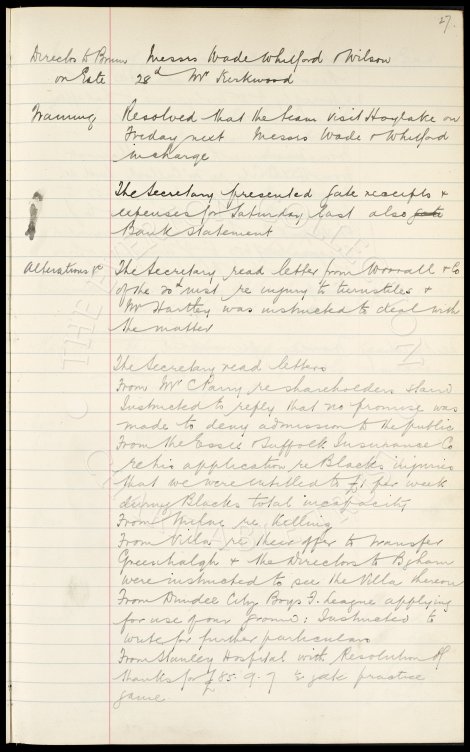 27.
Directors to Bpuns Messrs Wade Whitford & Wilson
on Gate 28th Mr Kirkwood
Training Resolved that the team visit Hoylake on
Friday next Messrs Wade & Whitford
in charge
The Secretary presented gate receipts &
expenses for Saturday last also gate
Bank statement
Alterations &c The Secretary read letter from Worrall & Co
of the 20th inst re injury to turnstiles &
Mr Hartley was instructed to deal with
the matter
The Secretary read letters
From Mr C Parry re shareholders stand
Instructed to reply that no promise was
made to deny admission to the public
From the Essex & Suffolk Insurance Co
re his application re Blacks injuries
that we were entitled to £1 per week
during Blacks total incapacity
From re
From Villa re their offer to transfer
Greenhalgh & the Directors to B'gham
were instructed to see the Villa thereon
From Dundee City Boys F. League applying
for use of our ground: Instructed to
write for further particulars
From Stanley Hospital with Resolution of
thanks for £85.9.7 gate practice
game